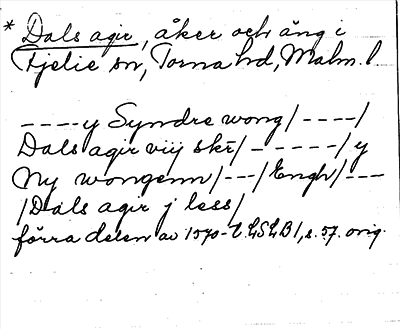 * Dals agir, åker och äng i
Fjelie sn, Torna hd, Malm. l
----y Syndre wong/----/
Dals agir viij skr/-----/y
Ny wongenn/---/Engh/---
/Dals agir j less/
förra delen av 1540-t. LSLB 1, s. 57. orig.